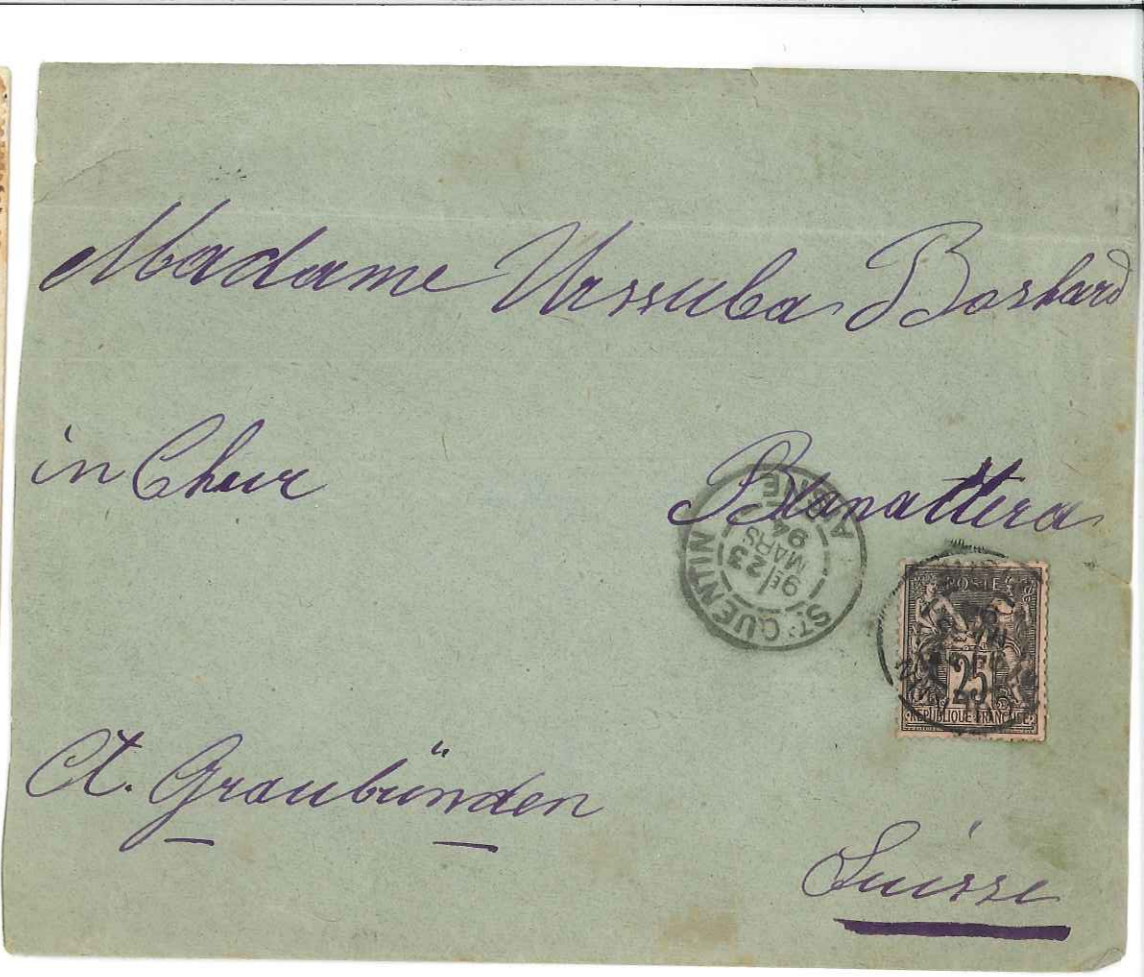 Madame Urssuba Boshard
in Chur Blanattera
ST QUENTIN
AISNE
9E
23
MARS
94
POSTE
25
REPUBLIQUE FRANCAISE
Ct. Graubünden
Suisse